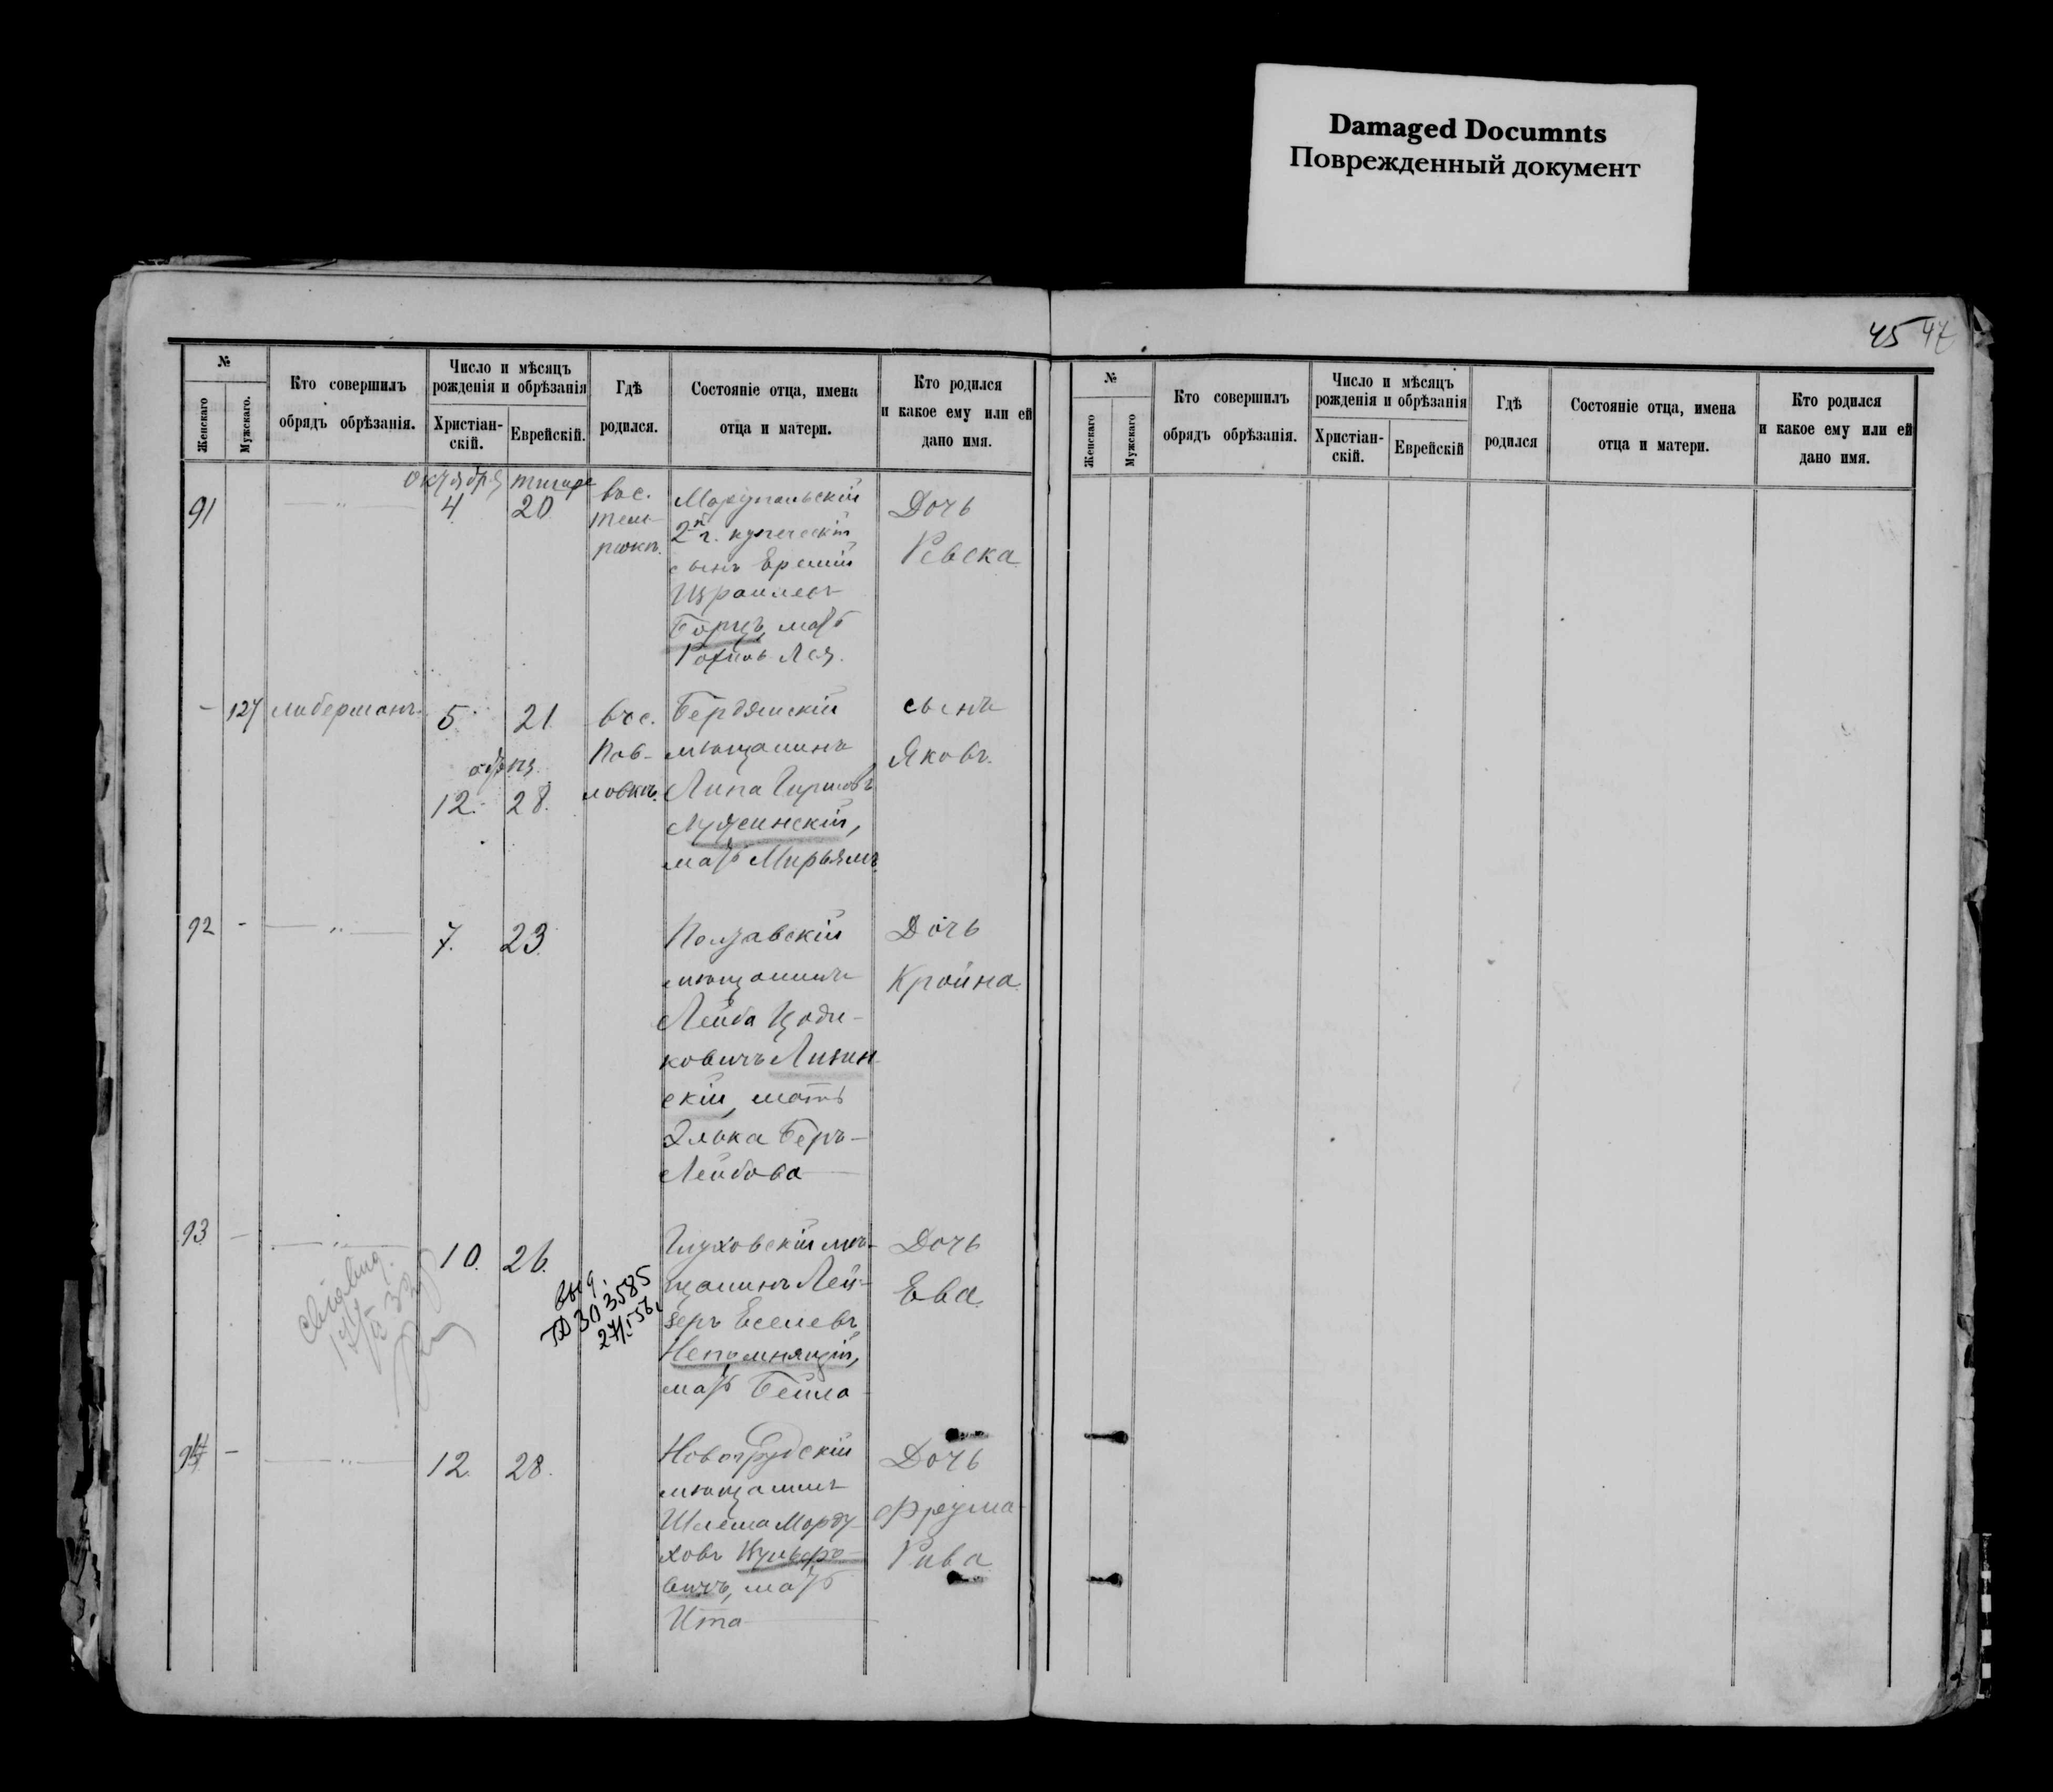 Damaged Documnts
Поврежденный документ
45 47
№
Женскаго
Мужскаго.
Кто совершилъ
обрядъ обрѣзанія.
Число и мѣсяцъ
рожденія и обрѣзанія
Христіан-
скій.
Еврейскій.
Гдѣ
родился.
Состояніе отца, имена
отца и матери.
Кто родился
и какое ему или ей
дано имя.
91
октября
4
20
Марiупольскій
2й г. купеческій
сынъ
Израилевъ
мать
Дочь
Ревека
-
127
Либерманъ
5
21
обрѣз.
12.
28.
въ с.
Пав-
ловкѣ.
Бердянскій
мѣщанинъ
Липа Гиршовъ
мать Мирьямъ
сынъ
Яковъ.
92
-
7.
23
Полтавскій
мѣщанинъ
Лейба Цоди-
ковичъ
скій, мать
Элька Беръ-
Лейбова
Дочь
Кройна
93
-
10.
26.
выд.
27/I 56
Глуховскій мѣ-
щанинъ Лей-
зеръ Еселевъ
Непомнящій,
мать Бейла
Дочь
Ева
94
-
12.
28.
Новогрудскій
мѣщанинъ
Шлема Морду-
ховъ
вичъ, мать
Ита
Дочь
Фрума-
Рива
№
Женскаго
Мужскаго
Кто совершилъ
обрядъ обрѣзанія.
Число и мѣсяцъ
рожденія и обрѣзанія
Христіан-
скій.
Еврейскій
Гдѣ
родился
Состояніе отца, имена
отца и матери.
Кто родился
и какое ему или ей
дано имя.